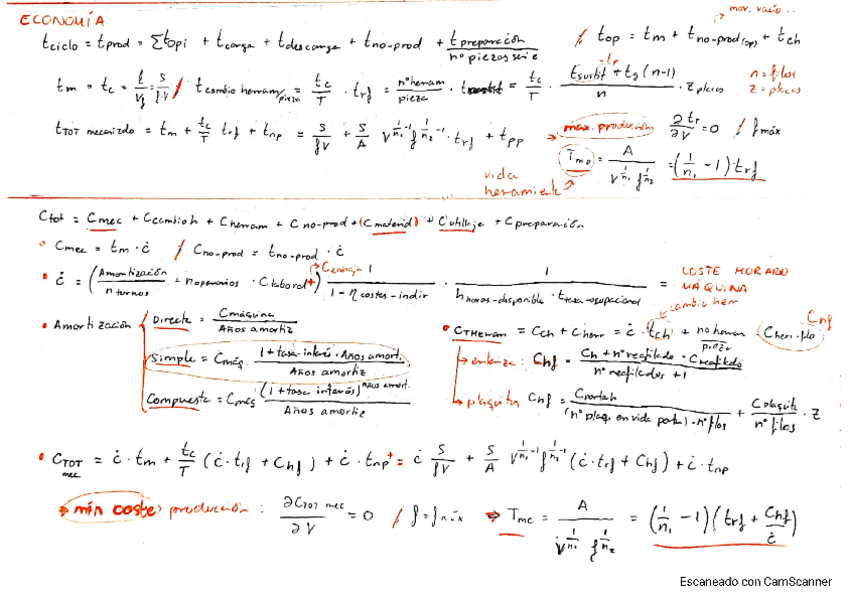 mar. vacío...
ECONOMÍA
t ciclo = t prod = Σ topi + t carga + t descarga + t no-prod + t preparación / nº piezas serie / top = tm + t no-prod(op) + tch
tm = tc = l/Vf = S/f·V / t cambio herram/pieza = tc/T · trf = nº herram/pieza · t sustit = tc/T · (t sustit + ts (n-1))/n · z placas
tp
n = filos
z = placas
t TOT mecanizado = tm + tc/T trf + tnp = S/fV + S/A V^(1/n1 -1) f^(1/n2 -1) · trf + tpp
max. producción ∂tr/∂V = 0 / fmáx
Tmp = A / V^(1/n1) f^(1/n2) = (1/n1 - 1) · trf
vida herramienta
Ctot = Cmec + Ccambio h + Cherram + C no-prod + (C material) + C utillaje + C preparación
Cmec = tm · ċ / C no-prod = t no-prod · ċ
ċ = (Amortización / n turnos + n operarios · C laboral + C energía) 1 / 1 - η costes-indir · 1 / h horas-disponible · t tasa-ocupacional = COSTE HORARIO MÁQUINA
cambio herr
Amortización
Directe = Cmáquina / Años amortiz
Simple = Cmáq. · 1 + tasa-interés · Años amort. / Años amortiz
Compueste = Cmáq (1 + tasa interés)^años amort. / Años amortiz
CTHERRAM = Cch + Cherr = ċ · tch + nº herram/pieza · Cherr-filo
Chf
enteriza: Chf = Ch + nº reafilado · Creafilado / nº reafilados + 1
plaquitas Chf = Cportah / (nº plaq. en vida porta) · nº filos + C plaquita / nº filos · Z
CTOT mec = ċ · tm + tc/T (ċ · trf + Chf) + ċ · tnp = ċ S/fV + S/A V^(1/n1 -1) f^(1/n2 -1) (ċ · trf + Chf) + ċ · tnp
mín coste producción: ∂CTOT mec / ∂V = 0 / f = fmáx ⇒ Tmc = A / V^(1/n1) f^(1/n2) = (1/n1 - 1) (trf + Chf/ċ)
Escaneado con CamScanner